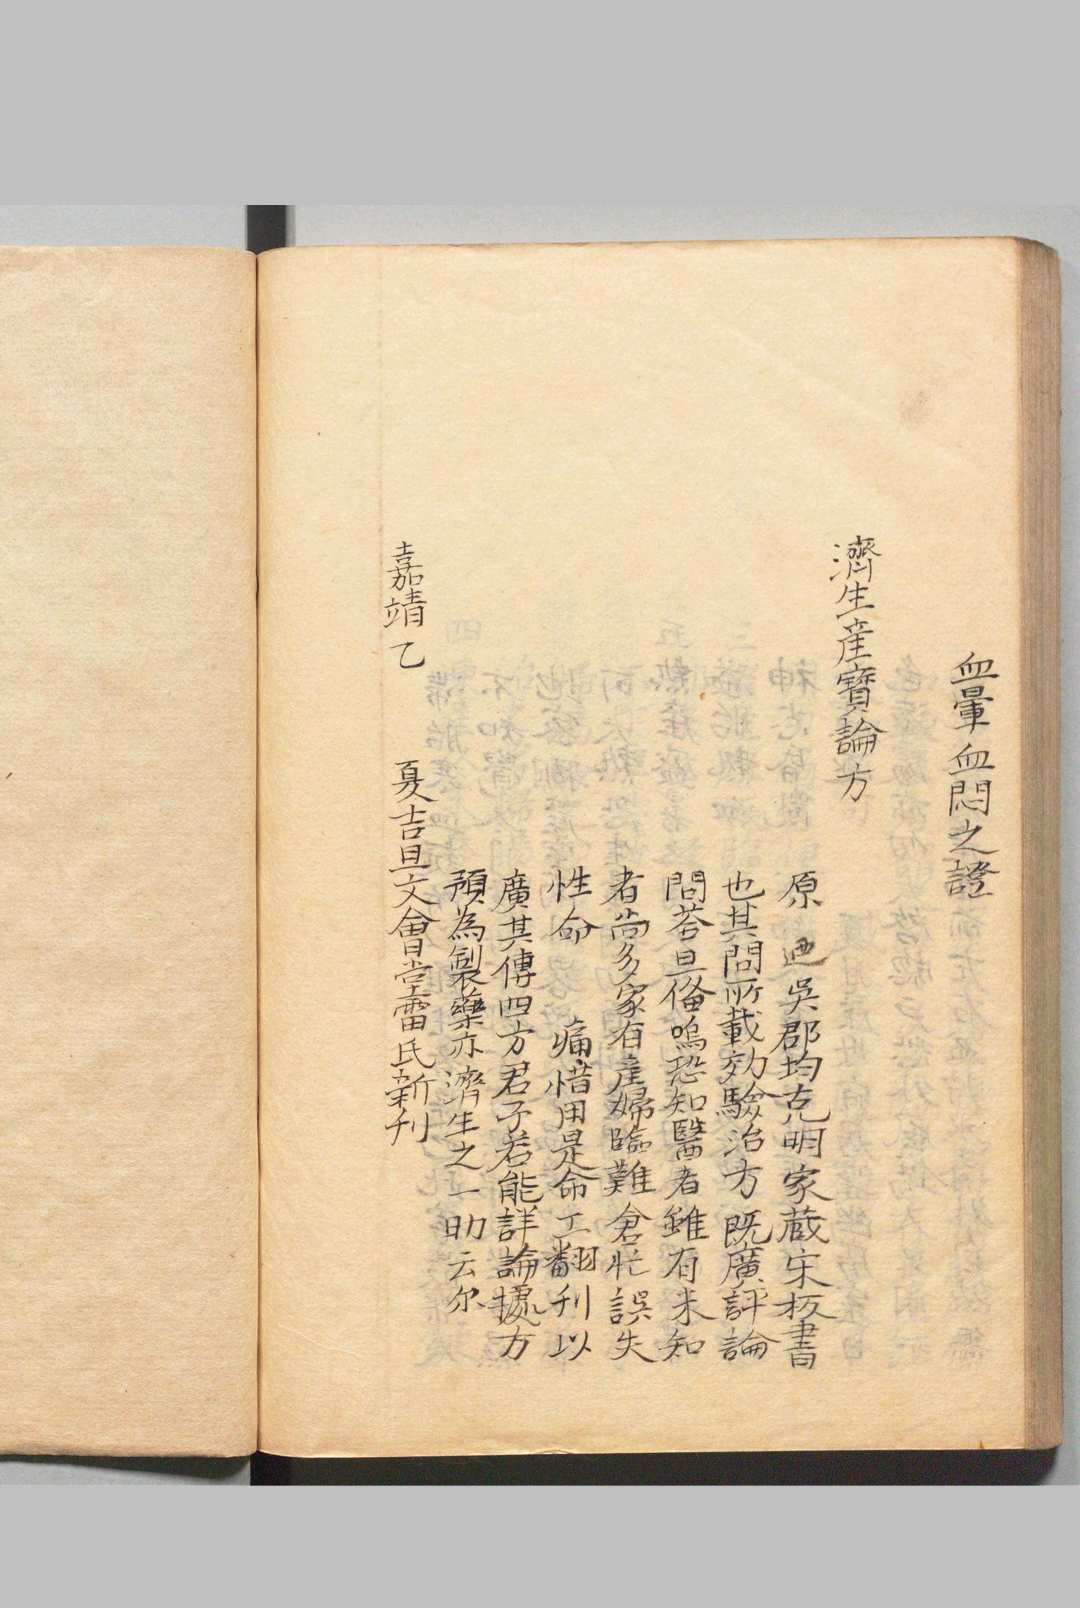 血暈血悶之證
濟生産寶論方
原 迺吳郡均克明家蔵宋板書
也其問所載効驗治方既廣評論
問荅且俻嗚恐知醫者雖有未知
者尚多家有産婦臨難倉忙誤失
性命 痛惜用是命工翻刋以
廣其傳四方君子若能詳論據方
預為製藥亦濟生之一助云尔
嘉靖乙 夏吉旦文會堂雷氏新刋